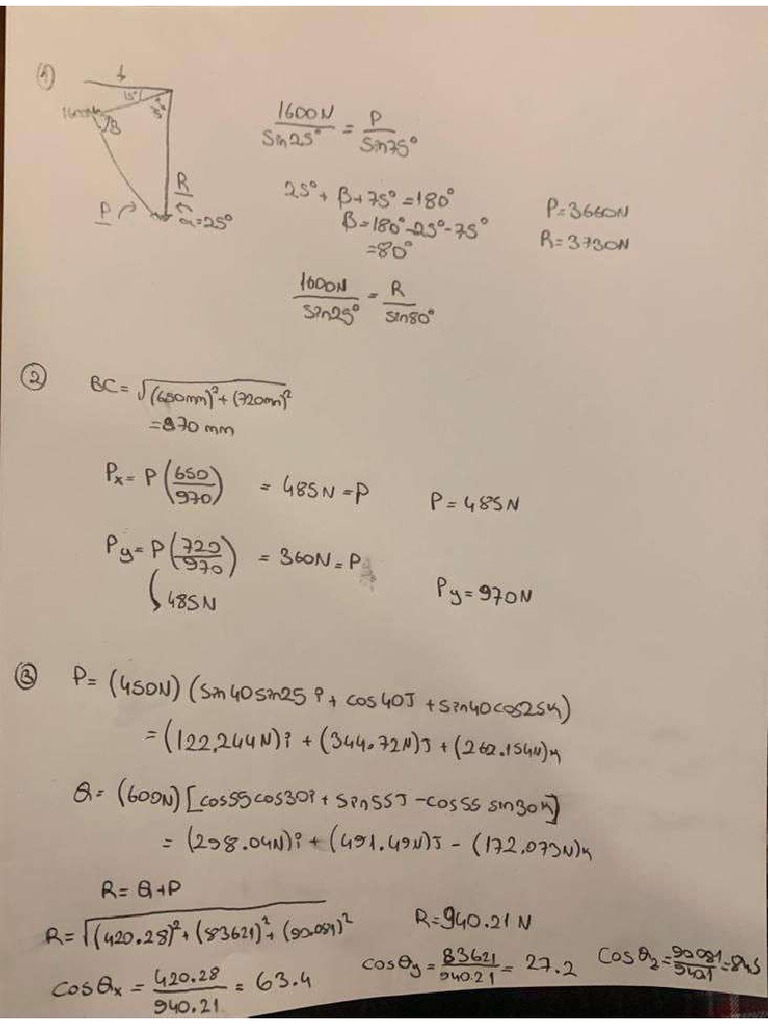 1)
15°
1600N
β
75°
R
P
α=25°
1600N/Sin25° = P/Sin75°
25° + β + 75° = 180°
β = 180° - 25° - 75°
= 80°
P = 3660N
R = 3730N
1600N/Sin25° = R/sin80°
2
BC = √(650mm)² + (720mm)²
= 970 mm
Px = P (650/970) = 485N = P
P = 485N
Py = P (720/970) = 360N = P
485N
Py = 970N
3
P = (450N) (Sin40sin25 i + cos40J + sin40cos25k)
= (122,244N)i + (344.72N)J + (262.154N)k
Q = (600N) [cos55cos30i + sin55J - cos55 sin30k]
= (298.04N)i + (491.49N)J - (172,073N)k
R = Q+P
R = √(420.28)² + (83621)² + (90.081)²
R = 940.21 N
Cosθx = 420.28/940.21 = 63.4
Cosθy = 83621/940.21 = 27.2
Cosθz = 90081/9401 = 845